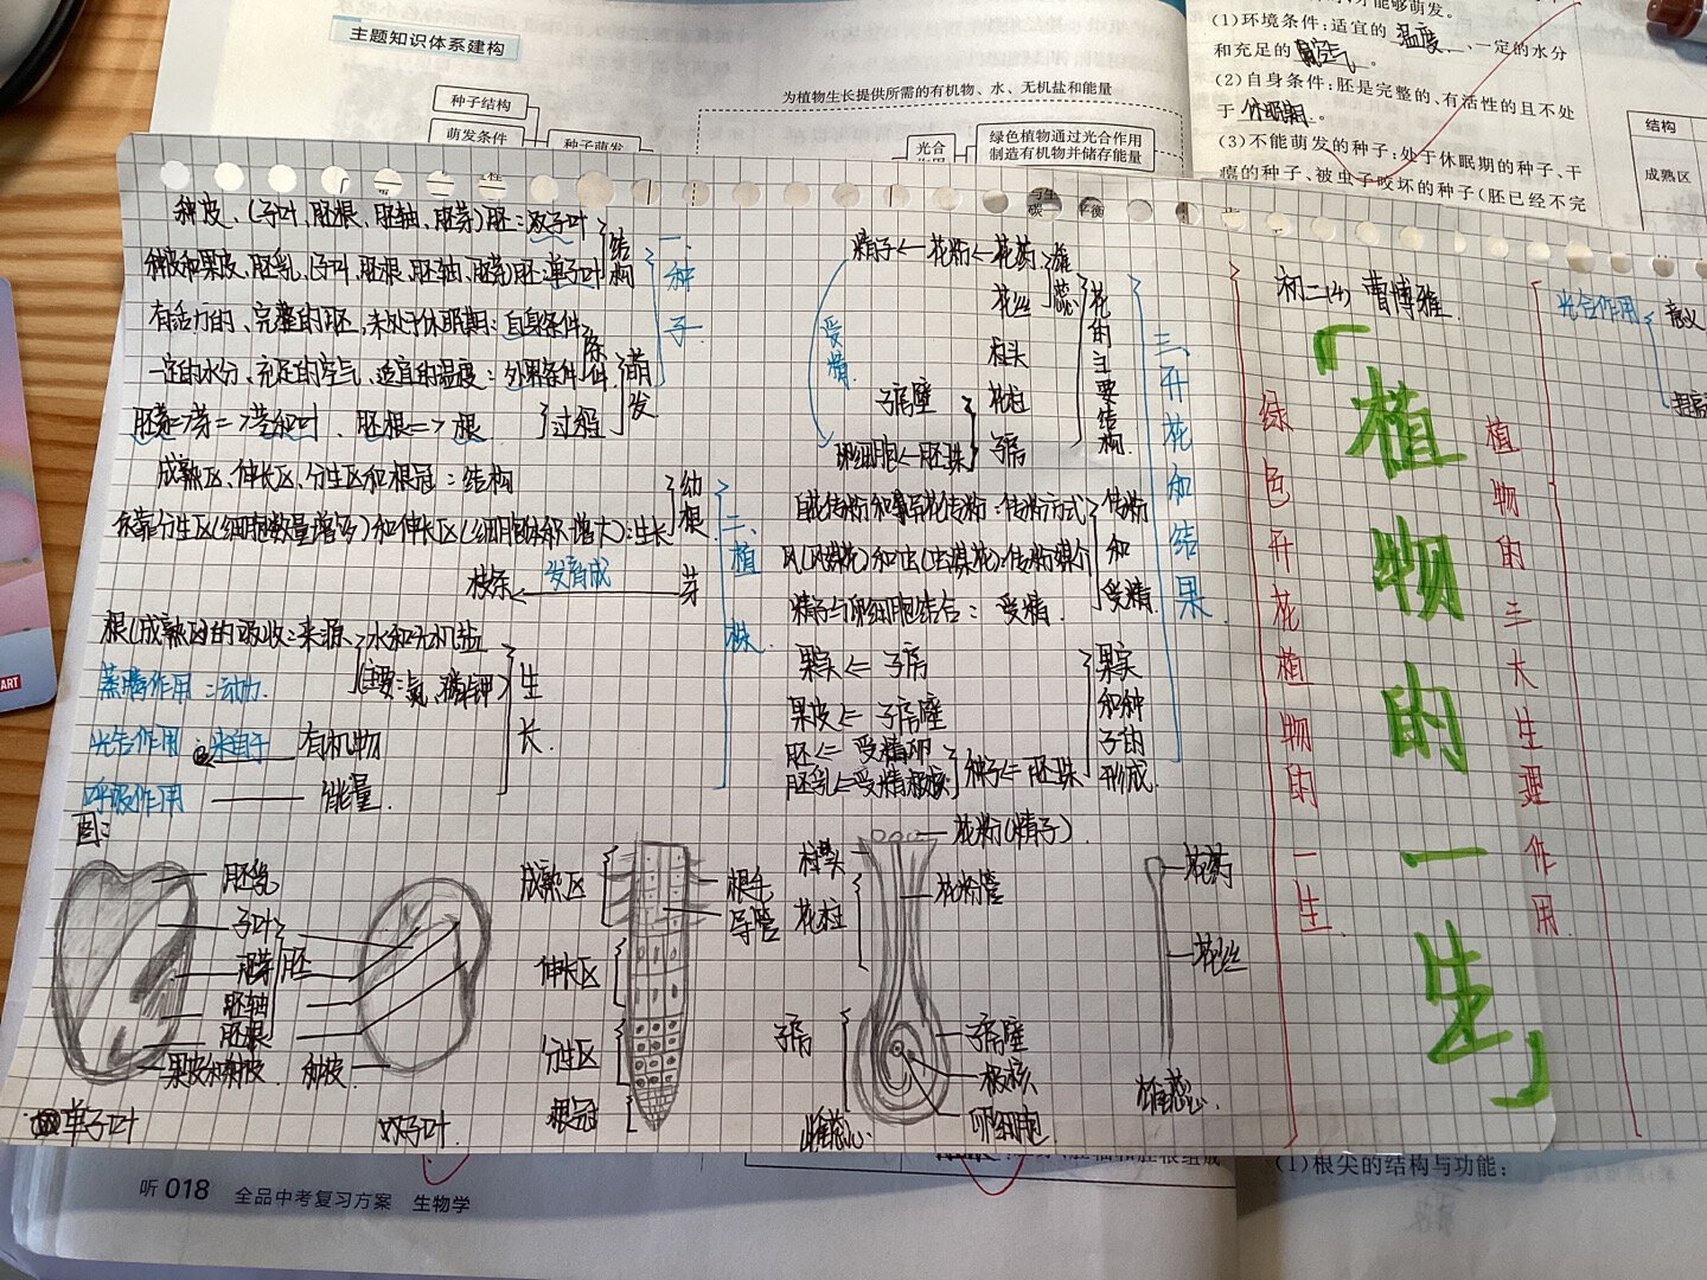 主题知识体系建构
种子结构
萌发条件
种子萌发
为植物生长提供所需的有机物、水、无机盐和能量
光合
绿色植物通过光合作用
制造有机物并储存能量
才能够萌发。
(1)环境条件:适宜的 温度 、一定的水分
和充足的 空气 。
(2)自身条件:胚是完整的、有活性的且不处
于 休眠期 。
(3)不能萌发的种子:处于休眠期的种子、干
瘪的种子、被虫子咬坏的种子(胚已经不完
结构
成熟区
种皮、(子叶、胚根、胚轴、胚芽)胚:双子叶
种皮和果皮、胚乳、(子叶、胚根、胚轴、胚芽)胚:单子叶
结构
有活力的、完整的胚,未处于休眠期:自身条件
一定的水分、充足的空气、适宜的温度:外界条件
条件
胚芽=>芽=>茎和叶、胚根=>根
过程
萌发
一、种子
成熟区、伸长区、分生区和根冠:结构
依靠分生区(细胞数量增多)和伸长区(细胞体积增大):生长
幼根
枝条 发育成 芽
根(成熟区)的吸收:来源
水和无机盐
(主要:氮、磷、钾)
蒸腾作用:动力.
光合作用 来自于 有机物
呼吸作用 能量.
生长.
二、植株.
精子←花粉←花药
花丝
雄蕊
受精.
柱头
子房壁 花柱
卵细胞←胚珠 子房
花的主要结构.
自花传粉和异花传粉:传粉方式
风(风媒花)和虫(虫媒花):传粉媒介
精子与卵细胞结合:受精.
传粉和受精.
果实⇐子房
果皮⇐子房壁
胚⇐受精卵
胚乳⇐受精极核
种子⇐胚珠
果实和种子的形成.
三、开花和结果.
图:
胚乳
子叶
胚芽
胚
胚轴
胚根
果皮和种皮.
种皮.
单子叶
双子叶.
成熟区
伸长区
分生区
根冠
根毛
导管
花粉(精子).
柱头
花柱
花粉管
子房
子房壁
极核
卵细胞.
雌蕊.
花药
花丝
雄蕊.
绿色开花植物的一生.
初二(4) 曹博雅.
「植物的一生」
植物的三大生理作用.
光合作用
意义
听 018 全品中考复习方案 生物学
(1)根尖的结构与功能: